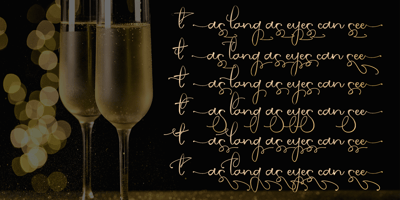 t as long as eyes can see
t as long as eyes can see
t as long as eyes can see
t as long as eyes can see
t as long as eyes can see
t as long as eyes can see